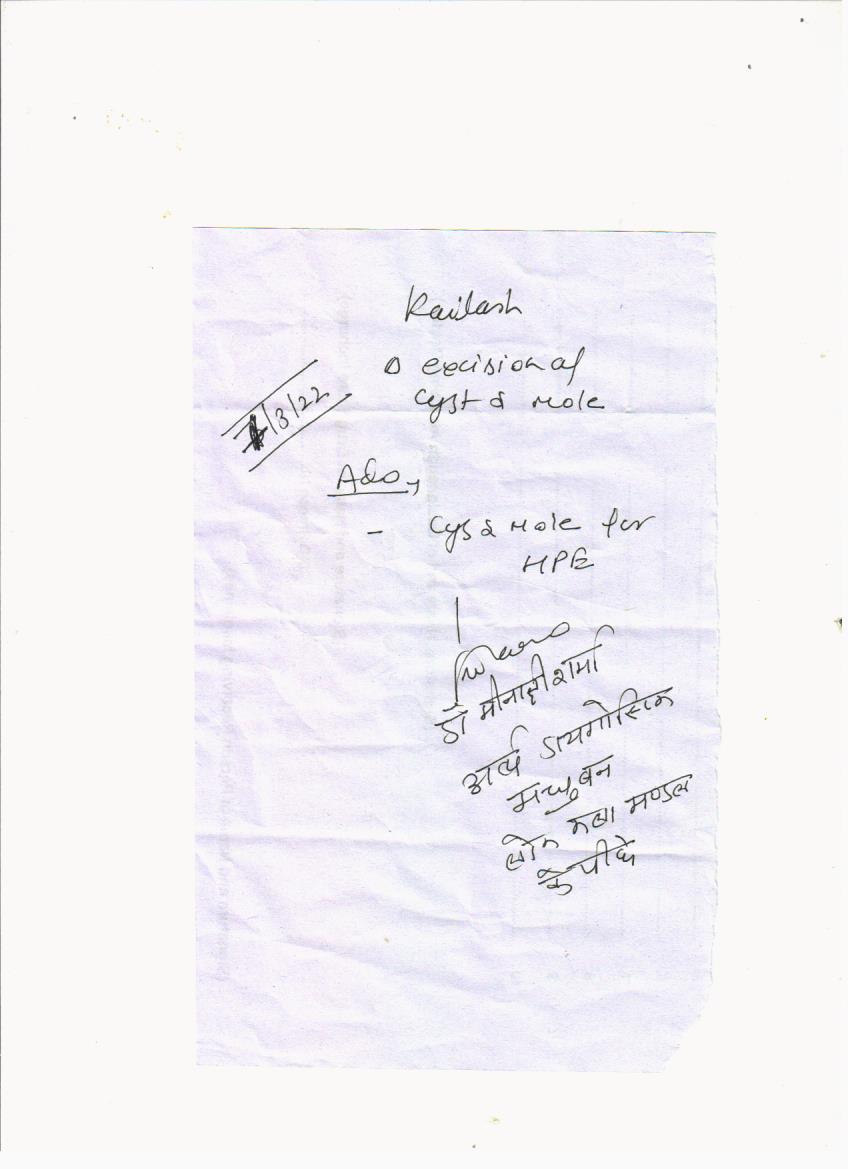 Kailash
excision of
cyst & mole
/3/22
Ado,
- Cyst & Mole for
HPE
डॉ मीनाक्षी शर्मा
अर्थ डायग्नोस्टिक
मधुबन
लोक कला मण्डल
के पीछे